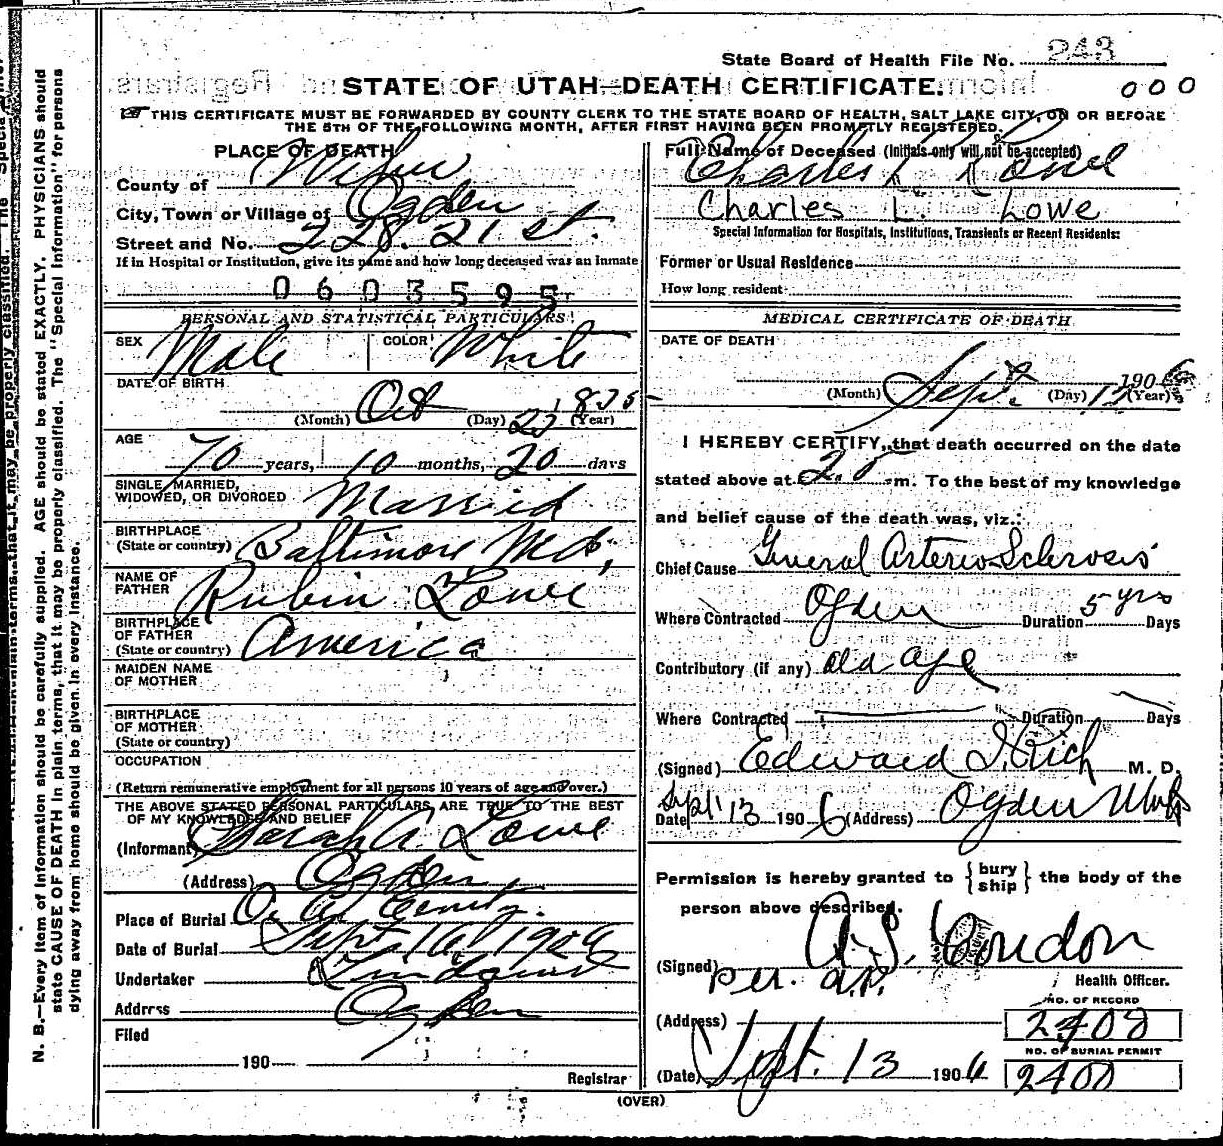 State Board of Health File No. 243
STATE OF UTAH—DEATH CERTIFICATE.
000
THIS CERTIFICATE MUST BE FORWARDED BY COUNTY CLERK TO THE STATE BOARD OF HEALTH, SALT LAKE CITY, ON OR BEFORE
THE 5TH OF THE FOLLOWING MONTH, AFTER FIRST HAVING BEEN PROMPTLY REGISTERED.
PLACE OF DEATH
County of Weber
City, Town or Village of Ogden
Street and No. 228. 21 st.
If in Hospital or Institution, give its name and how long deceased was an inmate
0603595
PERSONAL AND STATISTICAL PARTICULARS
SEX Male COLOR White
DATE OF BIRTH
(Month) Oct (Day) 23 (Year) 1835
AGE
70 years, 10 months, 20 days
SINGLE, MARRIED,
WIDOWED, OR DIVORCED Married
BIRTHPLACE
(State or country) Baltimore, Md,
NAME OF
FATHER Rubin Lowe
BIRTHPLACE
OF FATHER
(State or country) America
MAIDEN NAME
OF MOTHER
BIRTHPLACE
OF MOTHER
(State or country)
OCCUPATION
(Return remunerative employment for all persons 10 years of age and over.)
THE ABOVE STATED PERSONAL PARTICULARS ARE TRUE TO THE BEST
OF MY KNOWLEDGE AND BELIEF
(Informant) Sarah A. Lowe
(Address) Ogden
Place of Burial
Date of Burial Sept, 16, 1906
Undertaker Lindquist
Address Ogden
Filed
190
Registrar
(OVER)
Full Name of Deceased (Initials only will not be accepted)
Charles L. Lowe
Charles L. Lowe
Special Information for Hospitals, Institutions, Transients or Recent Residents:
Former or Usual Residence
How long resident
MEDICAL CERTIFICATE OF DEATH
DATE OF DEATH
(Month) Sept. (Day) 12 1906 (Year)
I HEREBY CERTIFY, that death occurred on the date
stated above at m. To the best of my knowledge
and belief cause of the death was, viz.:
Chief Cause General Arterio-Sclerosis
Where Contracted Ogden Duration 5 yrs Days
Contributory (if any) old age
Where Contracted Duration Days
(Signed) Edward I. Rich M. D.
Date Sept 13 1906 (Address) Ogden Utah
Permission is hereby granted to { bury ship } the body of the
person above described.
(Signed) A. S. Condon
per. a.p. Health Officer.
(Address) NO. OF RECORD 2408
NO. OF BURIAL PERMIT
(Date) Sept. 13 1906 2408
N. B.—Every item of information should be carefully supplied. AGE should be stated EXACTLY. PHYSICIANS should
state CAUSE OF DEATH in plain terms, that it may be properly classified. The "Special Information" for persons
dying away from home should be given in every instance.